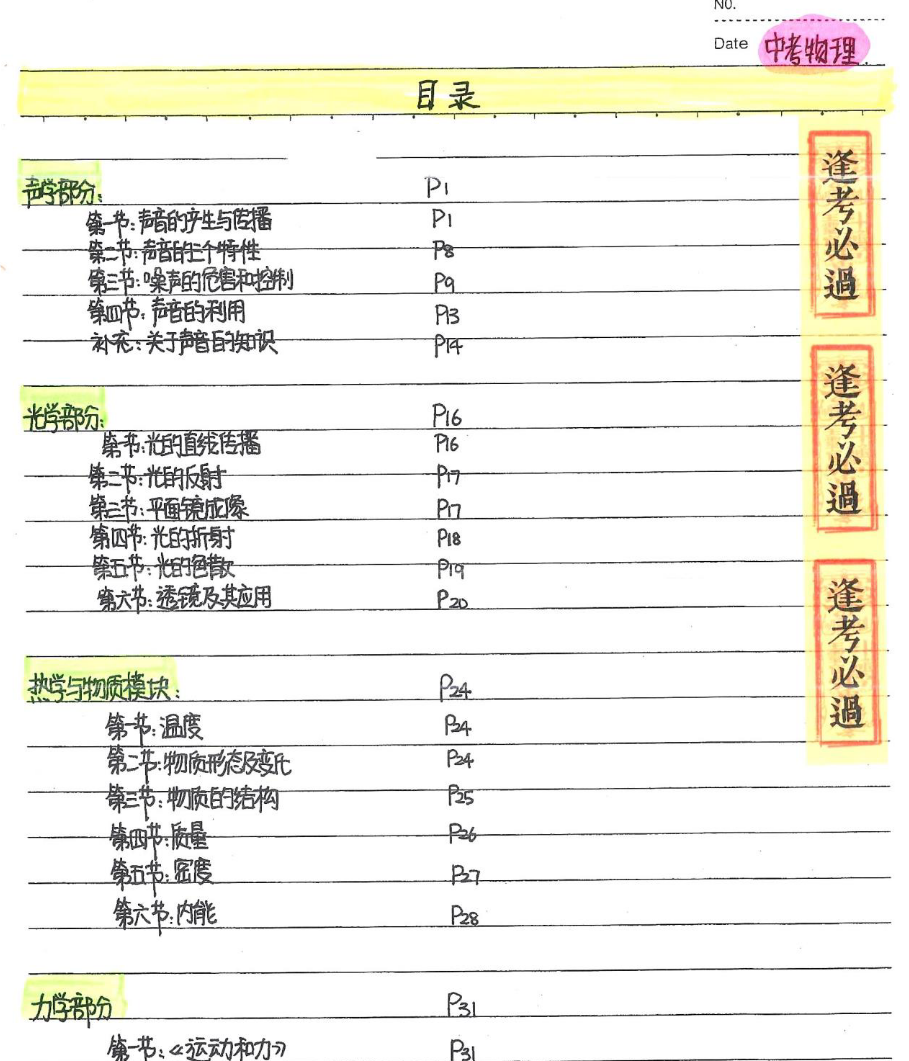 No.
Date 中考物理
目录
逢考必過
声学部分: P1
第一节:声音的产生与传播 P1
第二节:声音的三个特性 P8
第三节:噪声的危害和控制 P9
第四节:声音的利用 P13
补充:关于声音的知识 P14
逢考必過
光学部分: P16
第一节:光的直线传播 P16
第二节:光的反射 P17
第三节:平面镜成像 P17
第四节:光的折射 P18
第五节:光的色散 P19
第六节:透镜及其应用 P20
逢考必過
热学与物质模块: P24
第一节:温度 P24
第二节:物质形态及变化 P24
第三节:物质的结构 P25
第四节:质量 P26
第五节:密度 P27
第六节:内能 P28
力学部分 P31
第一节:《运动和力》 P31